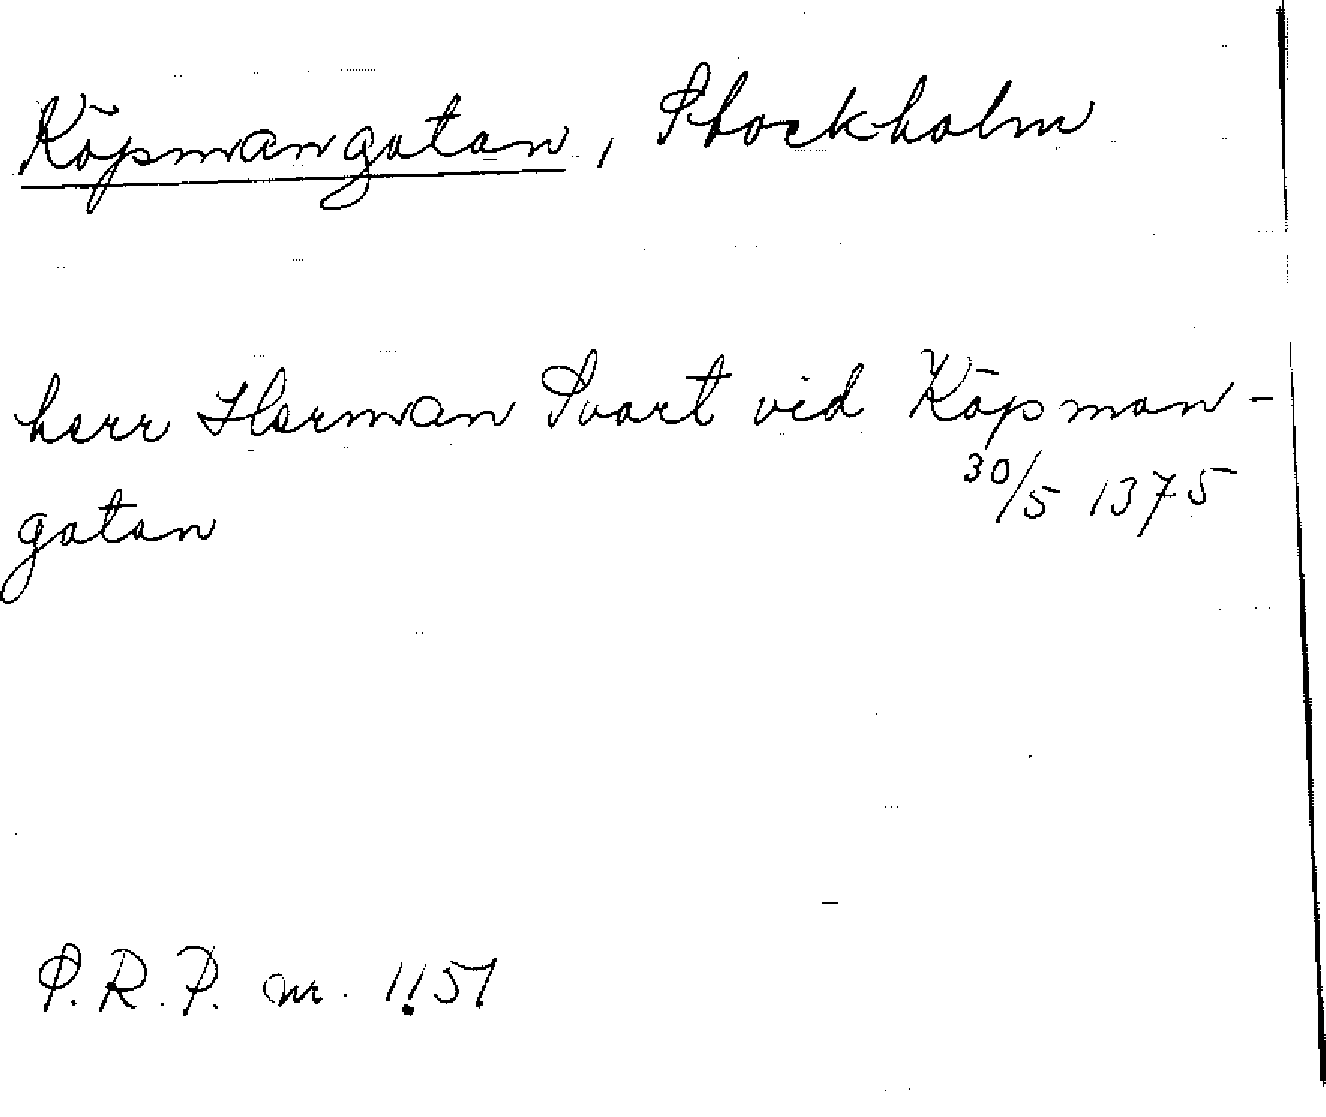 Köpmangatan, Stockholm
herr Herman Svart vid Köpman-
gatan 30/5 1375
S.R.P. nr. 1151